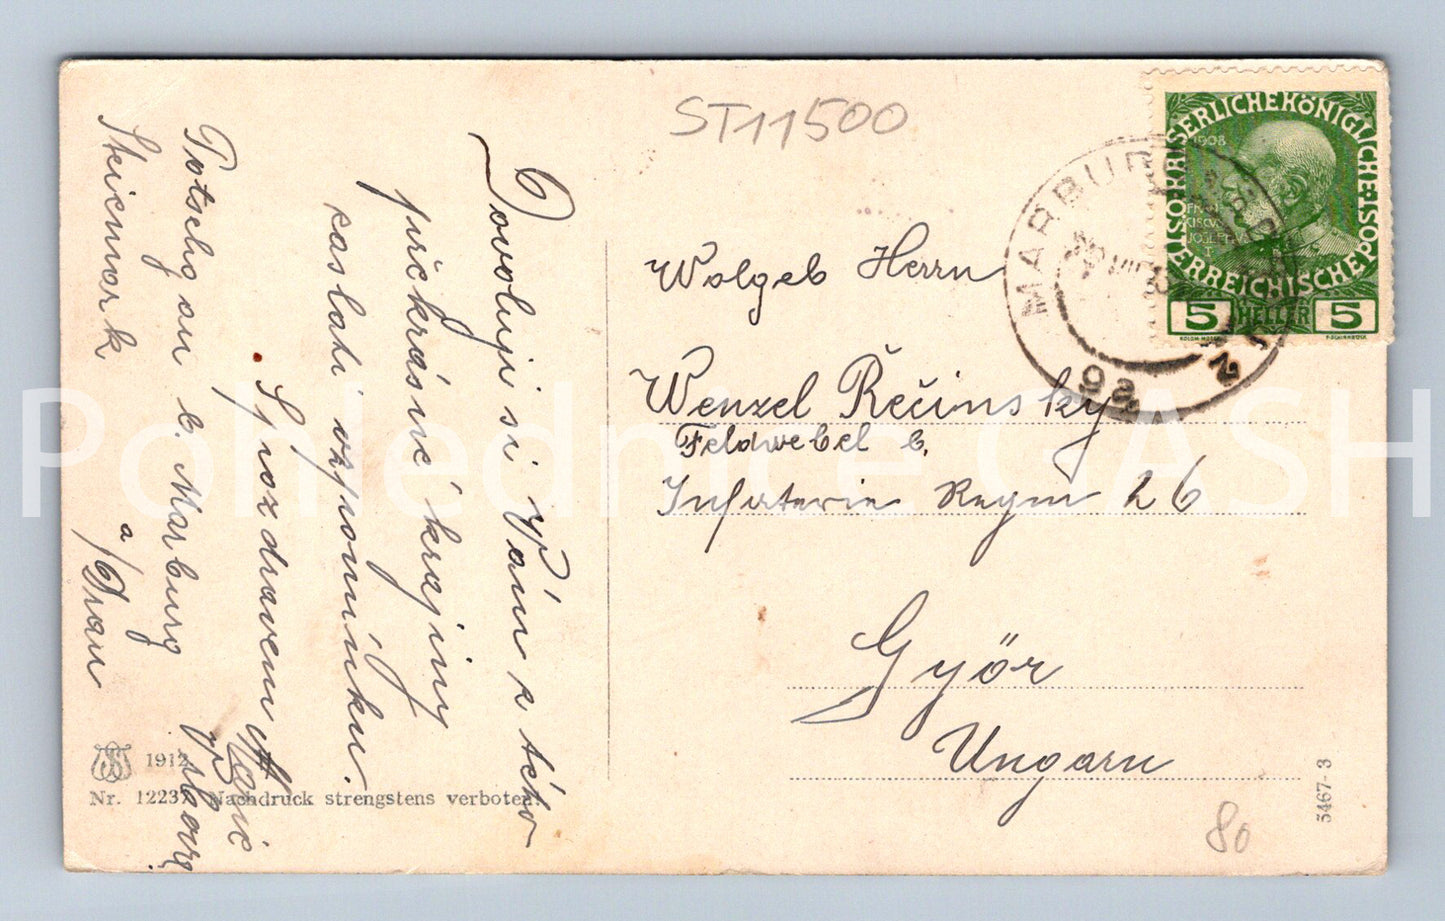 ST11500
Dovoluji si Vám z této
překrásné krajiny
zaslati vzpomínku.
S pozdravem
Potschg an b. Marburg
a/Drau
Steiermark
Wolgeb Herrn
Wenzel Řečinsky
Feldwebel b.
Infaterie Regm 26
Győr
Ungarn
KAISERLICHE KÖNIGLICHE
ÖSTERREICHISCHE POST
1908
5 HELLER 5
MARBURG
2
9a
1912
Nr. 12237 Nachdruck strengstens verboten!
5467-3
80
Pohlednice CASH